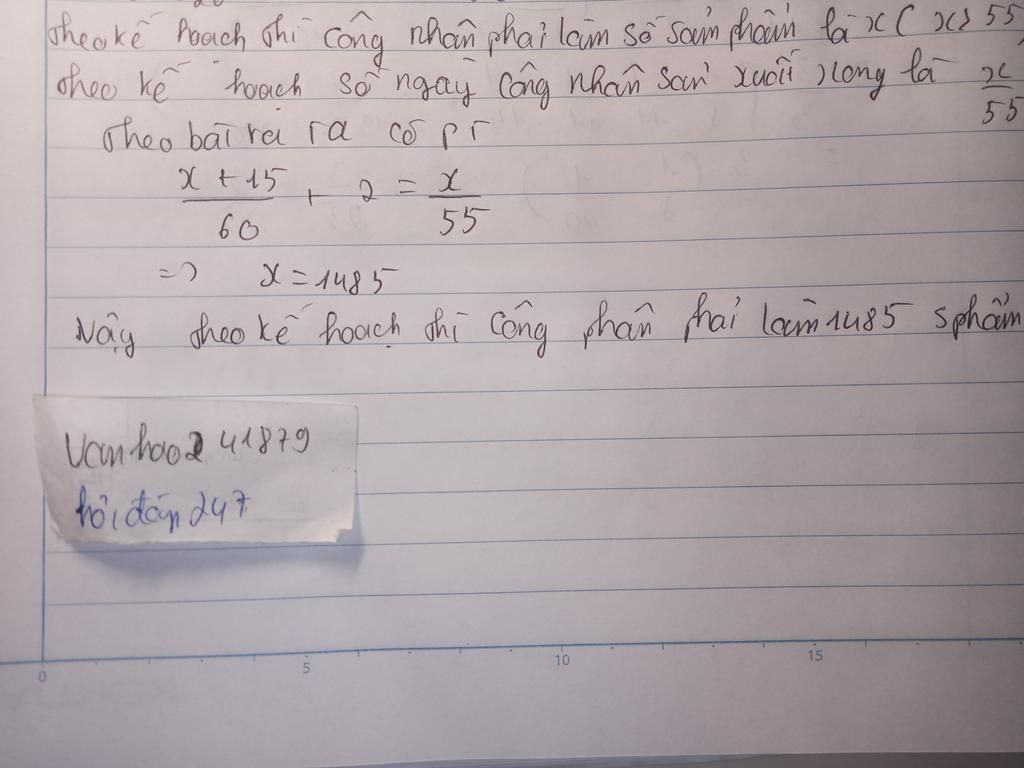 theo kế hoạch thì công nhân phải làm số sản phẩm là x ( x > 55
theo kế hoạch số ngày công nhân sản xuất xong là x/55
theo bài ra ra có pr
x + 15/60 + 2 = x/55
=> x = 1485
Vậy theo kế hoạch thì công phân phải làm 1485 sphẩm
Vanhao241879
hỏi đáp 247
0 5 10 15